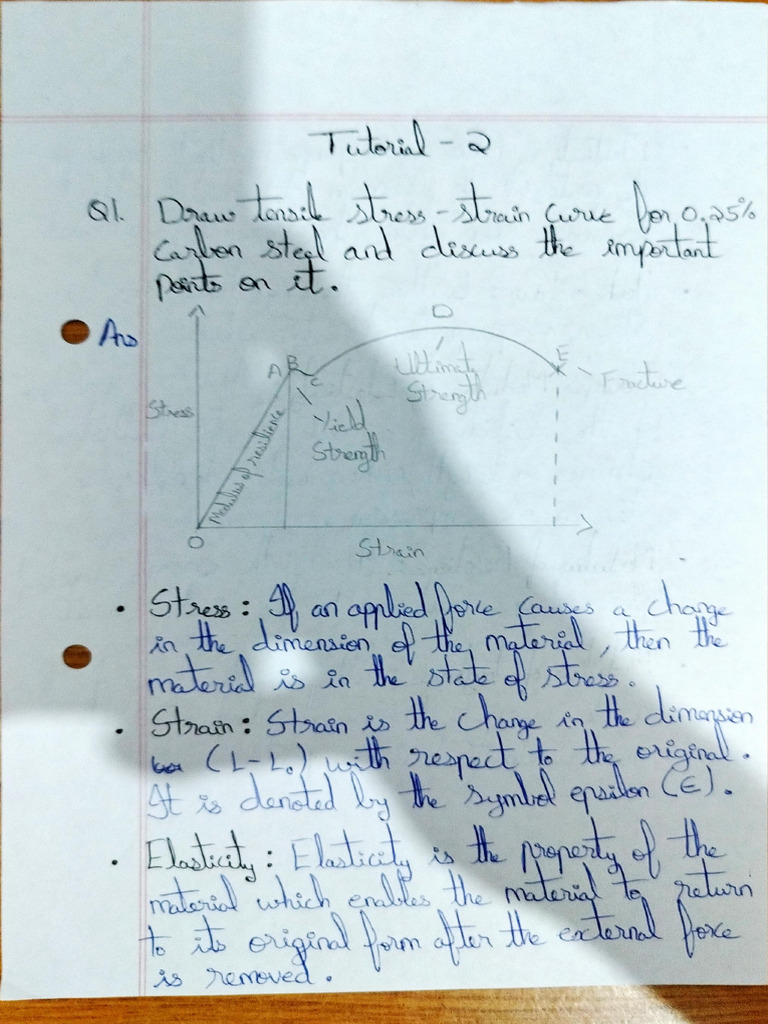 Tutorial - 2
Q1. Draw tensile stress-strain curve for 0.25%
carbon steel and discuss the important
points on it.
Ans
D
A B
C
E
Ultimate
Strength
Fracture
Stress
Yield
Strength
Modulus of resilience
O
Strain
• Stress : If an applied force causes a change
in the dimension of the material, then the
material is in the state of stress.
• Strain : Strain is the change in the dimension
(L-L₀) with respect to the original.
It is denoted by the symbol epsilon (ϵ).
• Elasticity : Elasticity is the property of the
material which enables the material to return
to its original form after the external force
is removed.